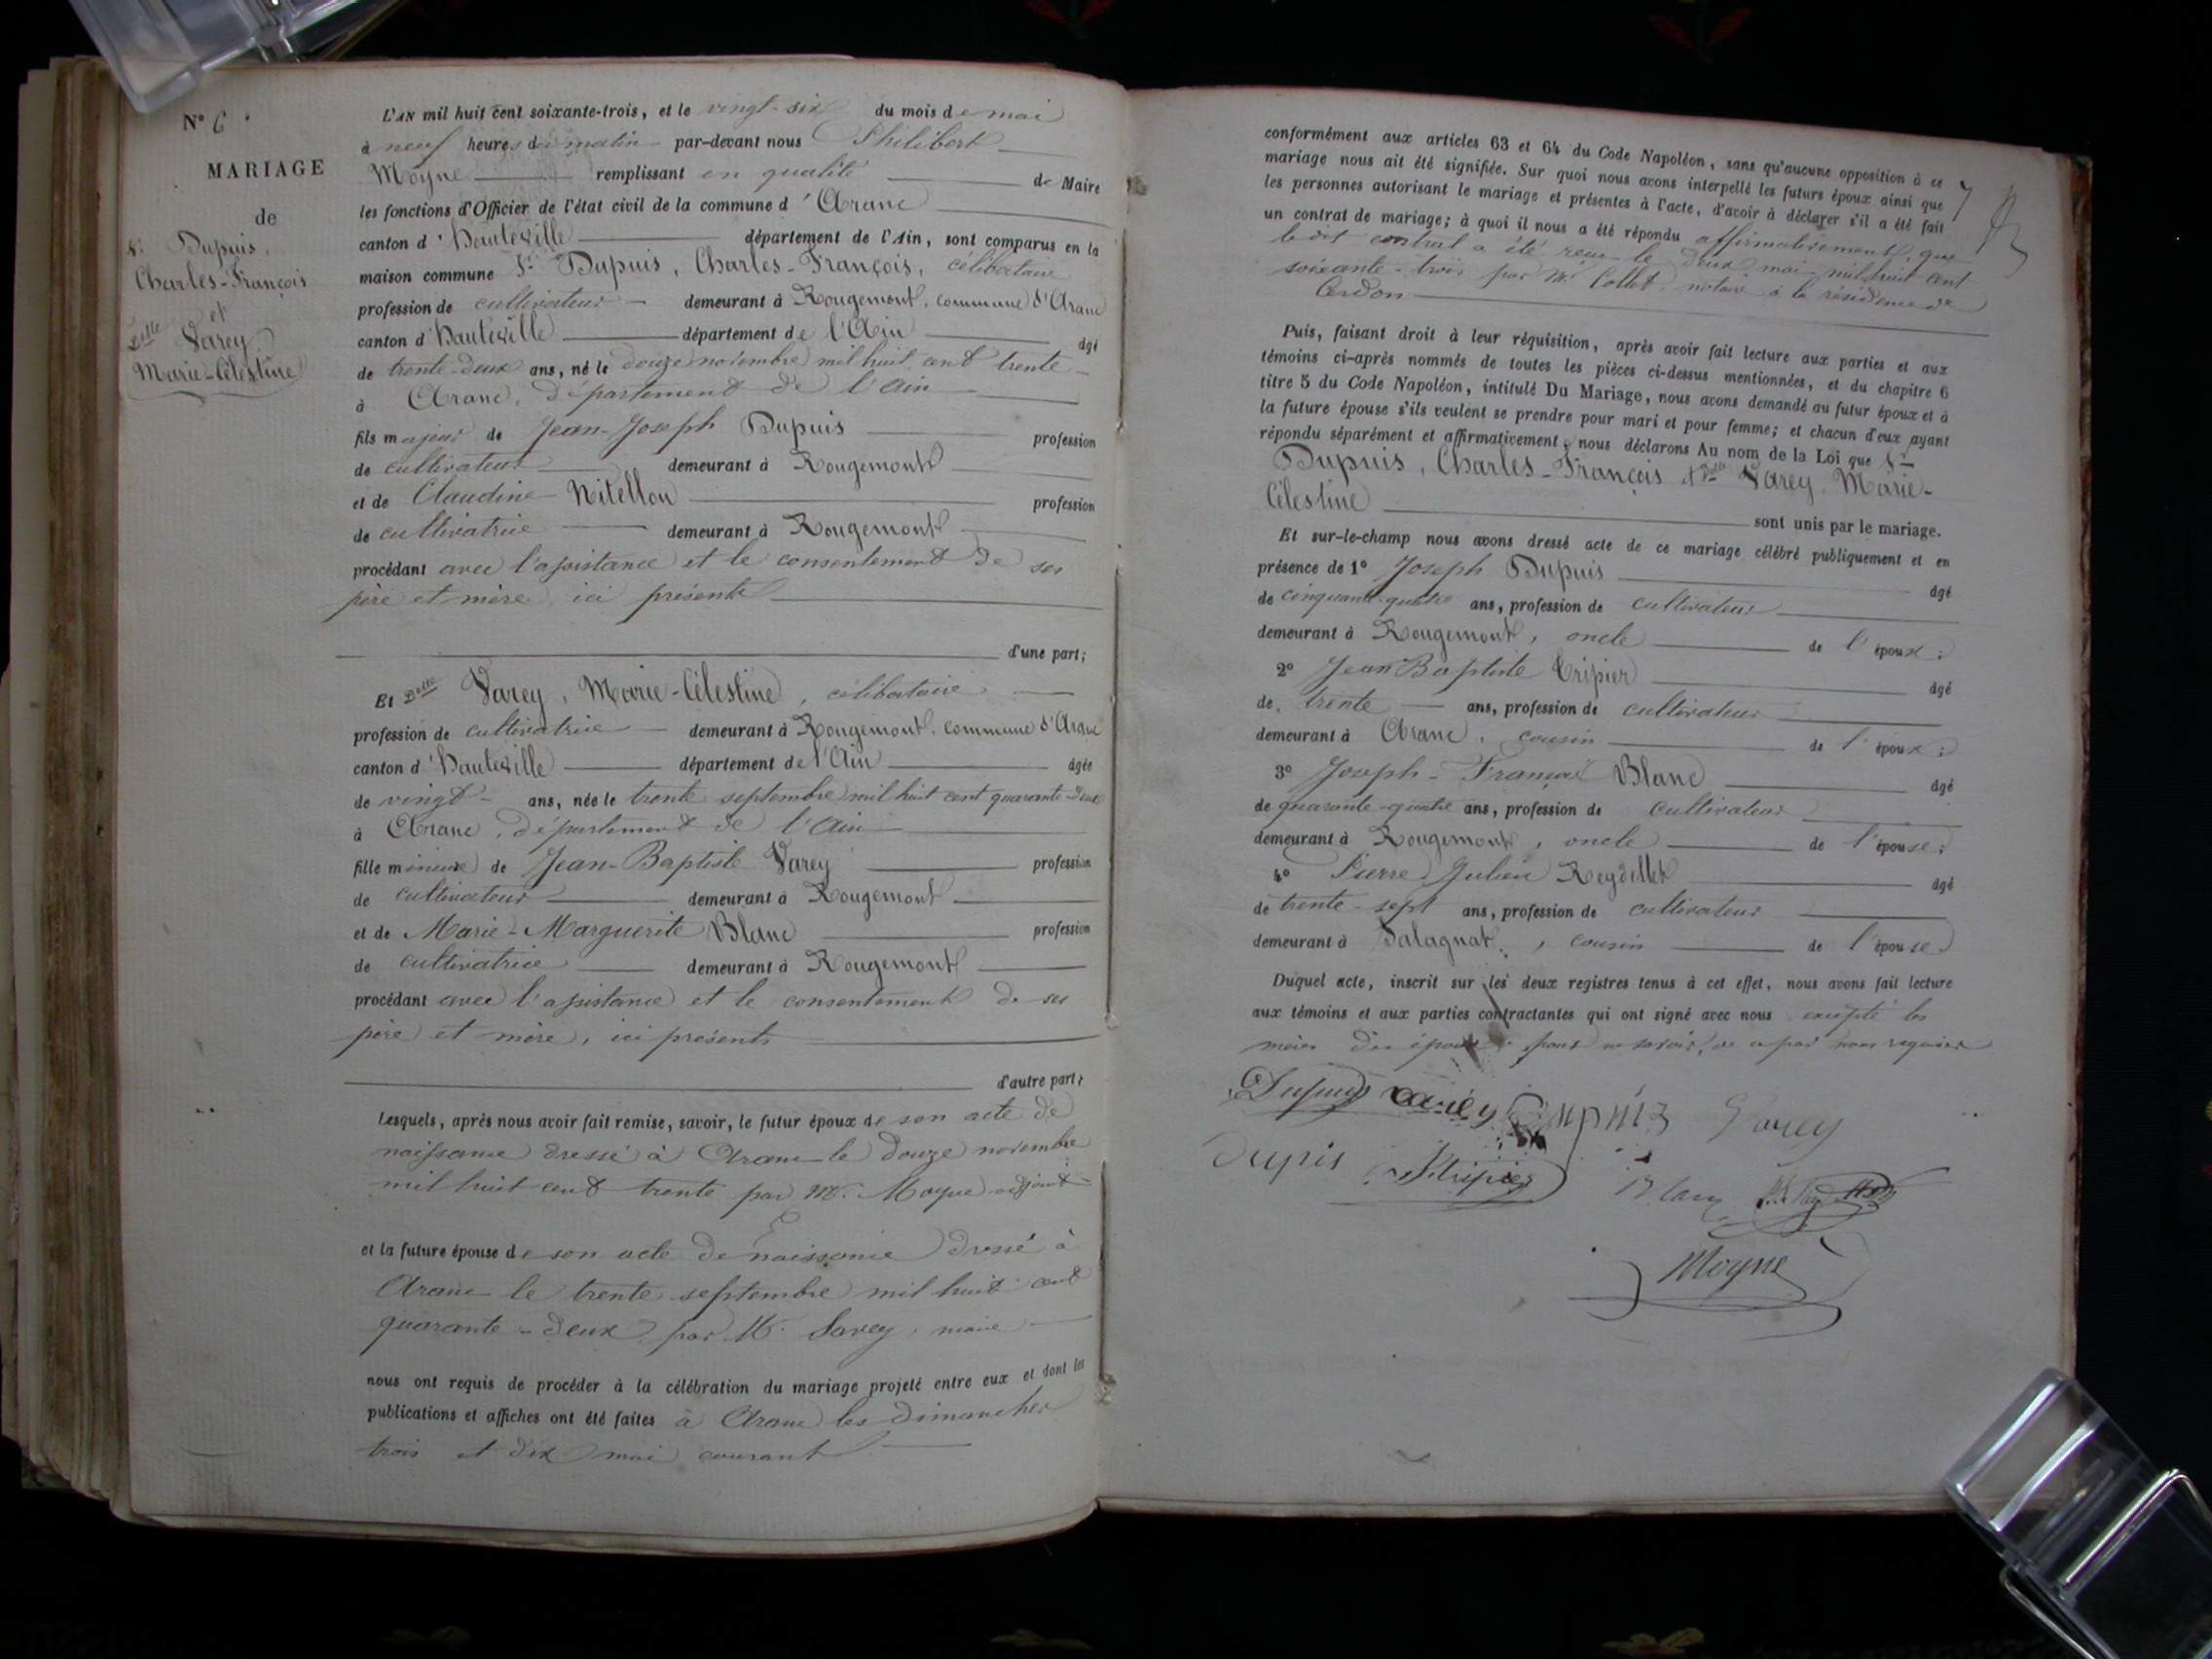 N° 6
MARIAGE
de
Sr Dupuis,
Charles-François
et
Delle Varey
Marie-Célestine
L'AN mil huit cent soixante-trois, et le vingt-six du mois de mai
à neuf heures du matin par-devant nous Philibert
Moyne remplissant en qualité de Maire
les fonctions d'Officier de l'état civil de la commune d'Aranc
canton d'Hauteville département de l'Ain, sont comparus en la
maison commune Sr Dupuis, Charles-François, célibataire
profession de cultivateur demeurant à Rougemont, commune d'Aranc
canton d'Hauteville département de l'Ain âgé
de trente-deux ans, né le douze novembre mil huit cent trente
à Aranc, département de l'Ain
fils majeur de Jean-Joseph Dupuis profession
de cultivateur demeurant à Rougemont
et de Claudine Nitellon profession
de cultivatrice demeurant à Rougemont
procédant avec l'assistance et le consentement de ses
père et mère, ici présents
d'une part;
Et Delle Varey, Marie-Célestine, célibataire
profession de cultivatrice demeurant à Rougemont, commune d'Aranc
canton d'Hauteville département de l'Ain âgée
de vingt ans, née le trente septembre mil huit cent quarante-deux
à Aranc, département de l'Ain
fille mineure de Jean-Baptiste Varey profession
de cultivateur demeurant à Rougemont
et de Marie-Marguerite Blanc profession
de cultivatrice demeurant à Rougemont
procédant avec l'assistance et le consentement de ses
père et mère, ici présents
d'autre part;
Lesquels, après nous avoir fait remise, savoir, le futur époux de son acte de
naissance dressé à Aranc le douze novembre
mil huit cent trente par Mr. Moyne adjoint
et la future épouse de son acte de naissance dressé à
Aranc le trente septembre mil huit cent
quarante-deux par Mr. Savey, maire
nous ont requis de procéder à la célébration du mariage projeté entre eux et dont les
publications et affiches ont été faites à Aranc les dimanches
trois et dix mai courant
conformément aux articles 63 et 64 du Code Napoléon, sans qu'aucune opposition à ce
mariage nous ait été signifiée. Sur quoi nous avons interpellé les futurs époux ainsi que
les personnes autorisant le mariage et présentes à l'acte, d'avoir à déclarer s'il a été fait
un contrat de mariage; à quoi il nous a été répondu affirmativement, que
le dit contrat a été reçu le deux mai mil huit cent
soixante-trois par Mr Collet, notaire à la résidence de
Cerdon
7
Puis, faisant droit à leur réquisition, après avoir fait lecture aux parties et aux
témoins ci-après nommés de toutes les pièces ci-dessus mentionnées, et du chapitre 6
titre 5 du Code Napoléon, intitulé Du Mariage, nous avons demandé au futur époux et à
la future épouse s'ils veulent se prendre pour mari et pour femme; et chacun d'eux ayant
répondu séparément et affirmativement, nous déclarons Au nom de la Loi que Sr
Dupuis, Charles-François et Delle Varey, Marie-
Célestine sont unis par le mariage.
Et sur-le-champ nous avons dressé acte de ce mariage célébré publiquement et en
présence de 1° Joseph Dupuis âgé
de cinquante-quatre ans, profession de cultivateur
demeurant à Rougemont, oncle de l'époux;
2° Jean Baptiste Tripier âgé
de trente ans, profession de cultivateur
demeurant à Aranc, cousin de l'époux;
3° Joseph-François Blanc âgé
de quarante-quatre ans, profession de cultivateur
demeurant à Rougemont, oncle de l'épouse;
4° Pierre Julien Reydellet âgé
de trente-sept ans, profession de cultivateur
demeurant à Palagnat, cousin de l'épouse
Duquel acte, inscrit sur les deux registres tenus à cet effet, nous avons fait lecture
aux témoins et aux parties contractantes qui ont signé avec nous excepté les
mères des époux pour ne savoir, de ce par nous requises
Dupuis varey Dupuis Varey
Dupis Tripier Blanc
Moyne